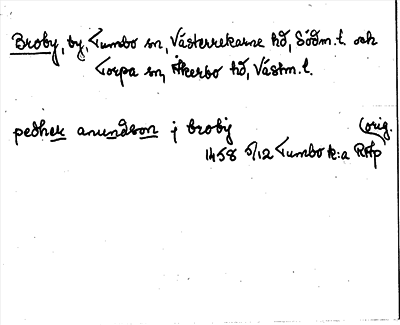 Broby, by, Tumbo sn, Västerrekarne hd, Södm. l. och
Torpa sn, Åkerbo hd, Västm. l.
pedhek anundson j broby (orig.
1458 5/12 Tumbo k:a RAp